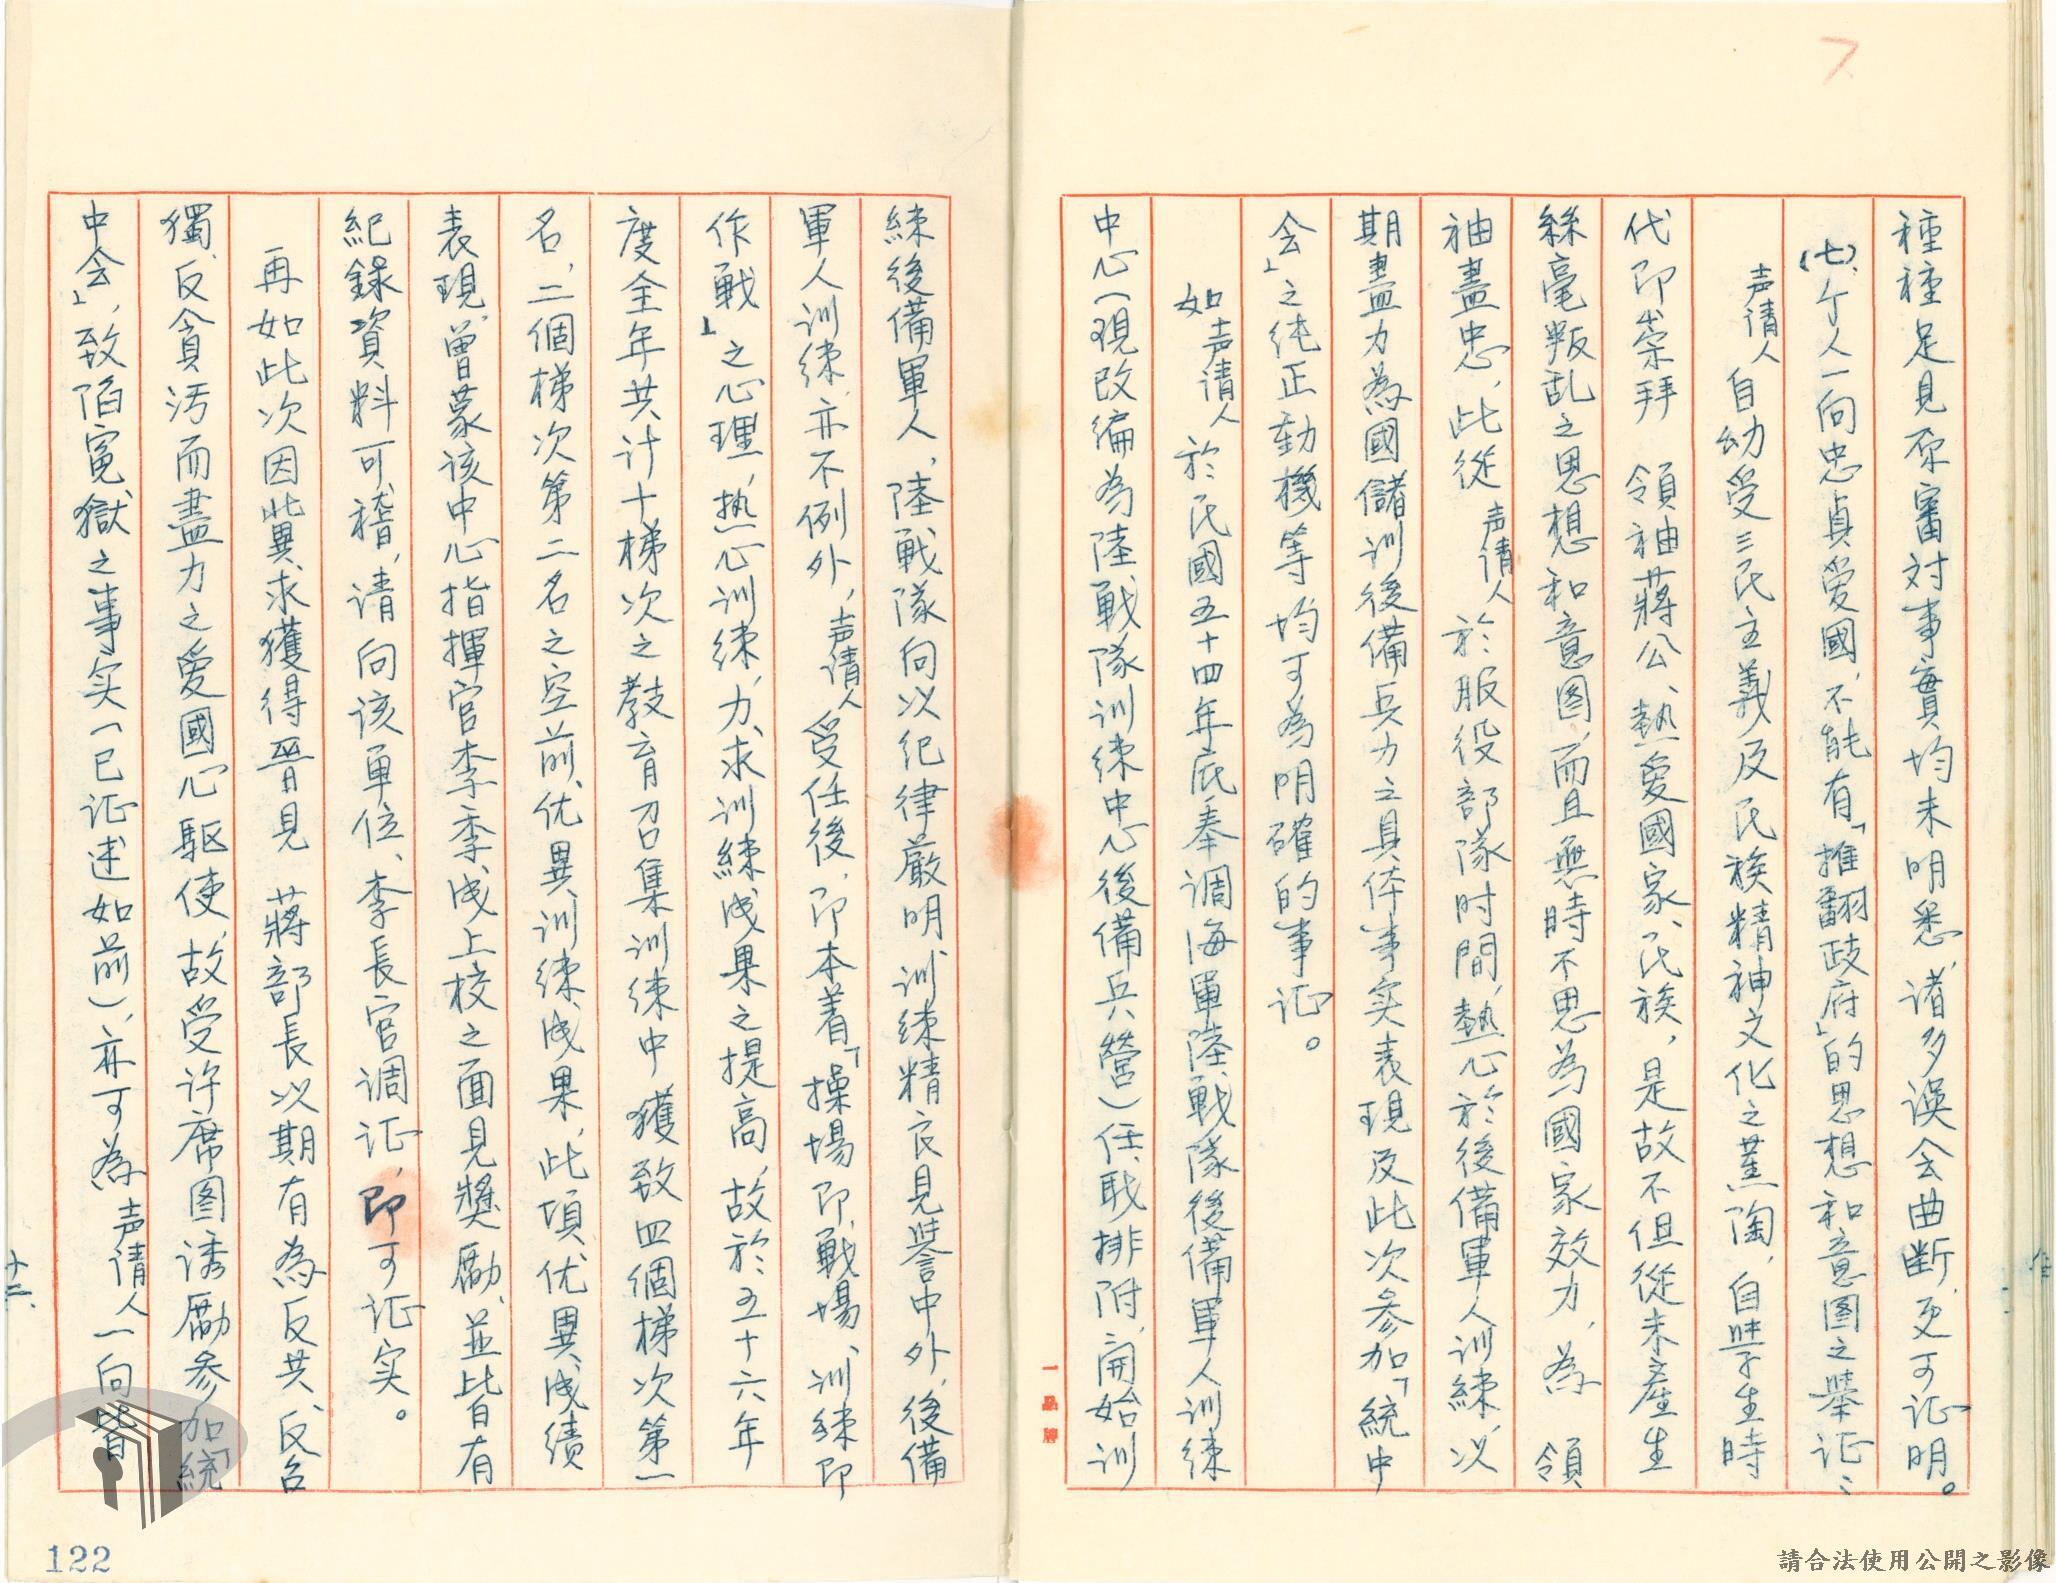 種種足見原審対事實均未明悉、诸多误会曲断、更可证明。
(七)、个人一向忠貞愛國、不能有「推翻政府」的思想和意图之举证：
声请人自幼受三民主義及民族精神文化之薰陶，自學生時
代即崇拜　領袖蔣公、熱愛國家、民族，是故不但從未產生
絲毫叛乱之思想和意图、而且無時不思為國家效力，為　領
袖盡忠，此從声请人於服役部隊时間，熱心於後備軍人训練，以
期盡力為國儲训後備兵力之具体事实表現及此次参加「統中
会」之纯正動機等均可為明確的事证。
如声请人於民國五十四年底奉调海軍陸戰隊後備軍人训練
中心(現改编為陸戰隊训練中心後備兵營)任職排附，開始训
練後備軍人，陸戰隊向以纪律嚴明、训練精良見譽中外，後備
軍人训練，亦不例外，声请人受任後，即本着「操場即戰場、训練即
作戰」之心理，热心训練，力求训練成果之提高，故於五十六年
度全年共计十梯次之教育召集训練中獲致四個梯次第一
名，二個梯次第二名之空前优異训練成果，此項优異成绩
表現，曾蒙该中心指揮官李季成上校之面見獎勵，並皆有
紀錄資料可稽，请向该單位、李長官调证，即可证实。
再如此次因冀求獲得晋見　蔣部長以期有為反共、反台
獨、反貪污而盡力之愛國心驅使，故受许席图诱勵参加「統
中会」，致陷冤獄之事实(已证述如前)，亦可為声请人一向皆
十三、
一品牌
122
請合法使用公開之影像